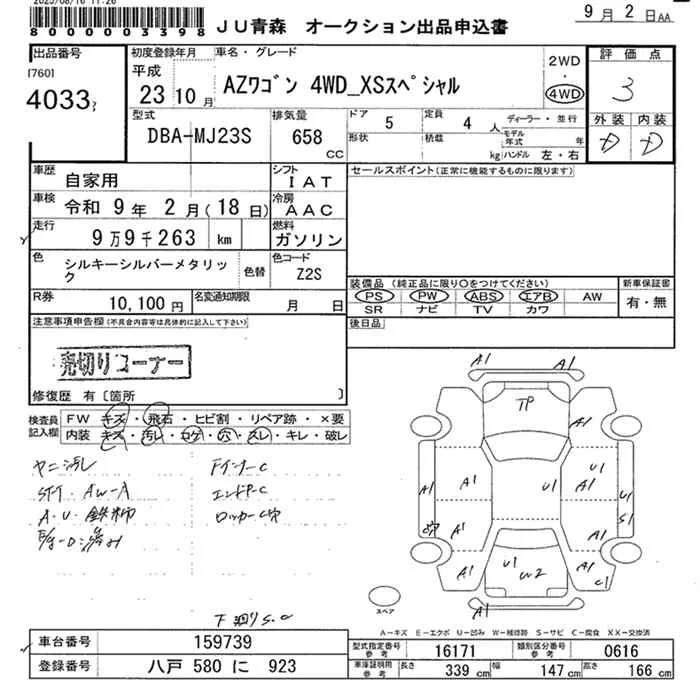 2025/08/16 11:26
8 0 0 0 0 0 3 3 9 8
JU青森 オークション出品申込書
9月2日AA
出品番号
[760]
4033
初度登録年月
平成
23 10月
車名・グレード
AZワゴン 4WD_XSスペシャル
2WD
・
4WD
評価点
3
外装 内装
D D
型式
DBA-MJ23S
排気量
658
CC
ドア 5
形状
定員 4 人
積載 kg
ディーラー・並行
モデル年式 年
ハンドル 左・右
車歴 自家用
シフト IAT
車検 令和 9年 2月(18日)
冷房 AAC
走行 9万9千263 km
燃料 ガソリン
色 シルキーシルバーメタリック
色替
色コード Z2S
R券 10,100円
名変通知期限 月 日
セールスポイント(正常に機能するものに限ります)
装備品(純正品に限り〇をつけてください)
PS PW ABS エアB AW
SR ナビ TV カワ
新車保証書
有・無
後日品
注意事項申告欄(不具合内容等は具体的に記入して下さい)
売切りコーナー
修復歴 有〔箇所 〕
検査員記入欄
FW キズ・飛石・ヒビ割・リペア跡・×要
内装 キズ・汚レ・コゲ・穴・スレ・キレ・破レ
ヤニ汚レ
STT AW-A
A・U 鉄柿
Fインナ-C
エンドP-C
ロッカーC穴
下廻りS.C
A1
A1
TP
A1
A1
A1
U1
U1
A1
U1
S1
A1
A1
A1
U1
W2
A1
C1
A1
スペア
A-キズ E-エクボ U-凹み W-補修跡 S-サビ C-腐食 XX-交換済
車台番号 159739
登録番号 八戸 580 に 923
型式指定番号 参考 16171
類別区分番号 参考 0616
車庫証明用 参考 長さ 339 cm 幅 147 cm 高さ 166 cm